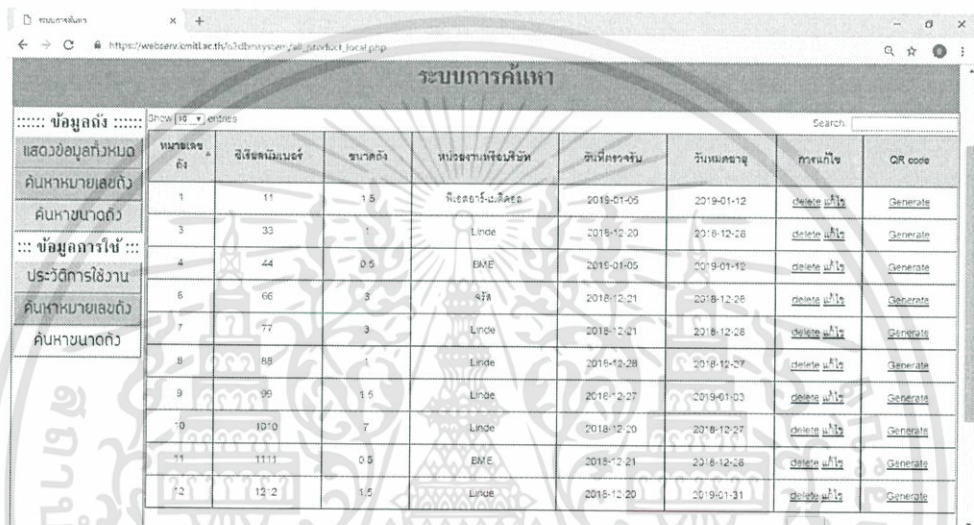 ระบบการค้นหา
https://webserv.kmitl.ac.th/o2dbmsystem/all_product_local.php
ระบบการค้นหา
:::::: ข้อมูลถัง ::::::
แสดงข้อมูลทั้งหมด
ค้นหาหมายเลขถัง
ค้นหาขนาดถัง
::: ข้อมูลการใช้ :::
ประวัติการใช้งาน
ค้นหาหมายเลขถัง
ค้นหาขนาดถัง
Show 10 entries Search:
หมายเลขถัง ซีเรียลนัมเบอร์ ขนาดถัง หน่วยงานหรือบริษัท วันที่ตรวจรับ วันหมดอายุ การแก้ไข QR code
1 11 1.5 2019-01-05 2019-01-12 delete แก้ไข Generate
3 33 1 Linde 2018-12-20 2018-12-28 delete แก้ไข Generate
4 44 0.5 BME 2019-01-05 2019-01-12 delete แก้ไข Generate
6 66 3 จรัล 2018-12-21 2018-12-28 delete แก้ไข Generate
7 77 3 Linde 2018-12-21 2018-12-28 delete แก้ไข Generate
8 88 1 Linde 2018-12-28 2018-12-27 delete แก้ไข Generate
9 99 1.5 Linde 2018-12-27 2019-01-03 delete แก้ไข Generate
10 1010 7 Linde 2018-12-20 2018-12-27 delete แก้ไข Generate
11 1111 0.5 BME 2018-12-21 2018-12-28 delete แก้ไข Generate
12 1212 1.5 Linde 2018-12-20 2019-01-31 delete แก้ไข Generate